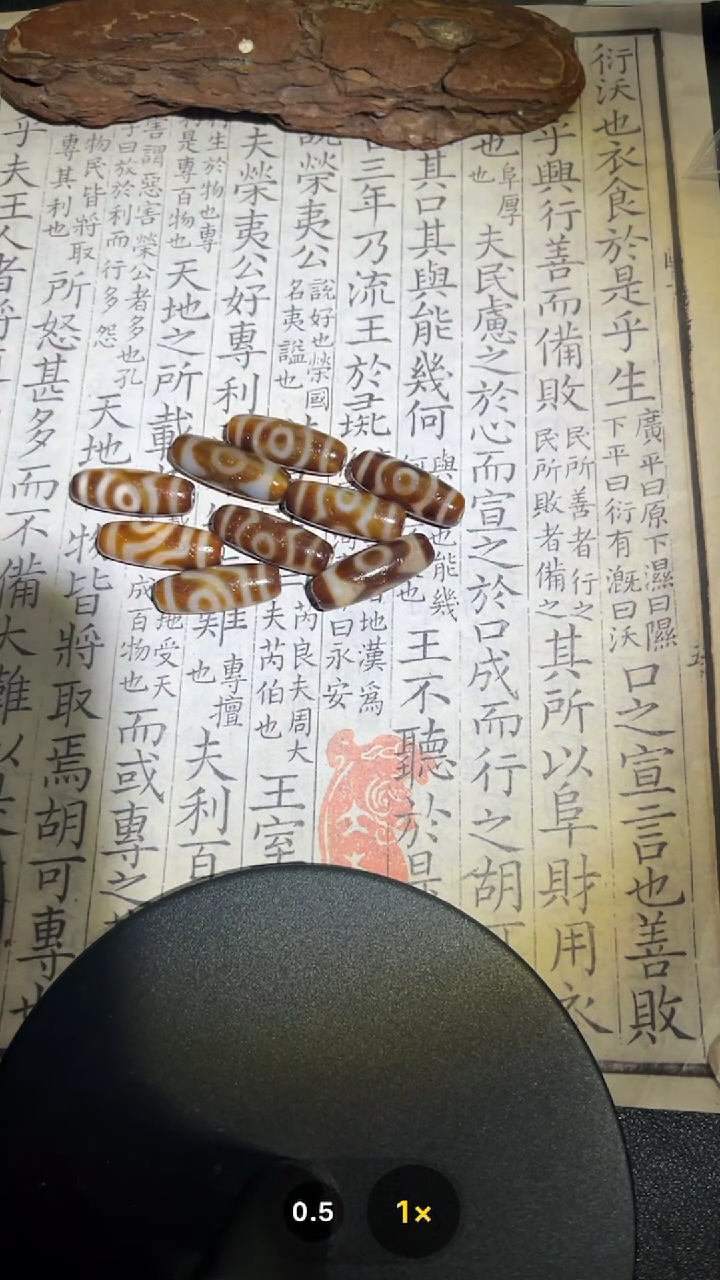 衍沃也衣食於是乎生廣平曰原下濕曰隰下平曰衍有溉曰沃口之宣言也善敗
乎興行善而備敗民所善者行之民所敗者備之其所以阜財用衣
也阜厚也夫民慮之於心而宣之於口成而行之胡
其口其與能幾何與也能幾也王不聽於是
三年乃流王於彘地漢為曰永安
說榮夷公說好也榮國名夷謚也芮良夫周大夫芮伯也王室
夫榮夷公好專利矣專擅也夫利百
生於物也專利是專百物也天地之所載地受天成百物也而或專之
害謂惡害榮公者多也孔子曰放於利而行多怨天地物皆將取焉胡可專也
物民皆將取專其利也所怒甚多而不備大難以
乎夫王人者將
0.5
1×